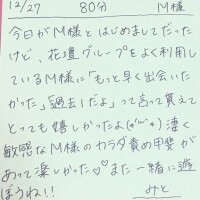 12/27 80分 M様
今日がM様とはじめましてだった
けど、花壇グループをよく利用し
ているM様に「もっと早く出会いた
かった」「過去1だよ」って言って貰えて
とっても嬉しかったよ(๑'ω'๑) 凄く
敏感なM様のカラダ責め甲斐が
あって楽しかった♡♡また一緒に遊
ぼうね!!
みと